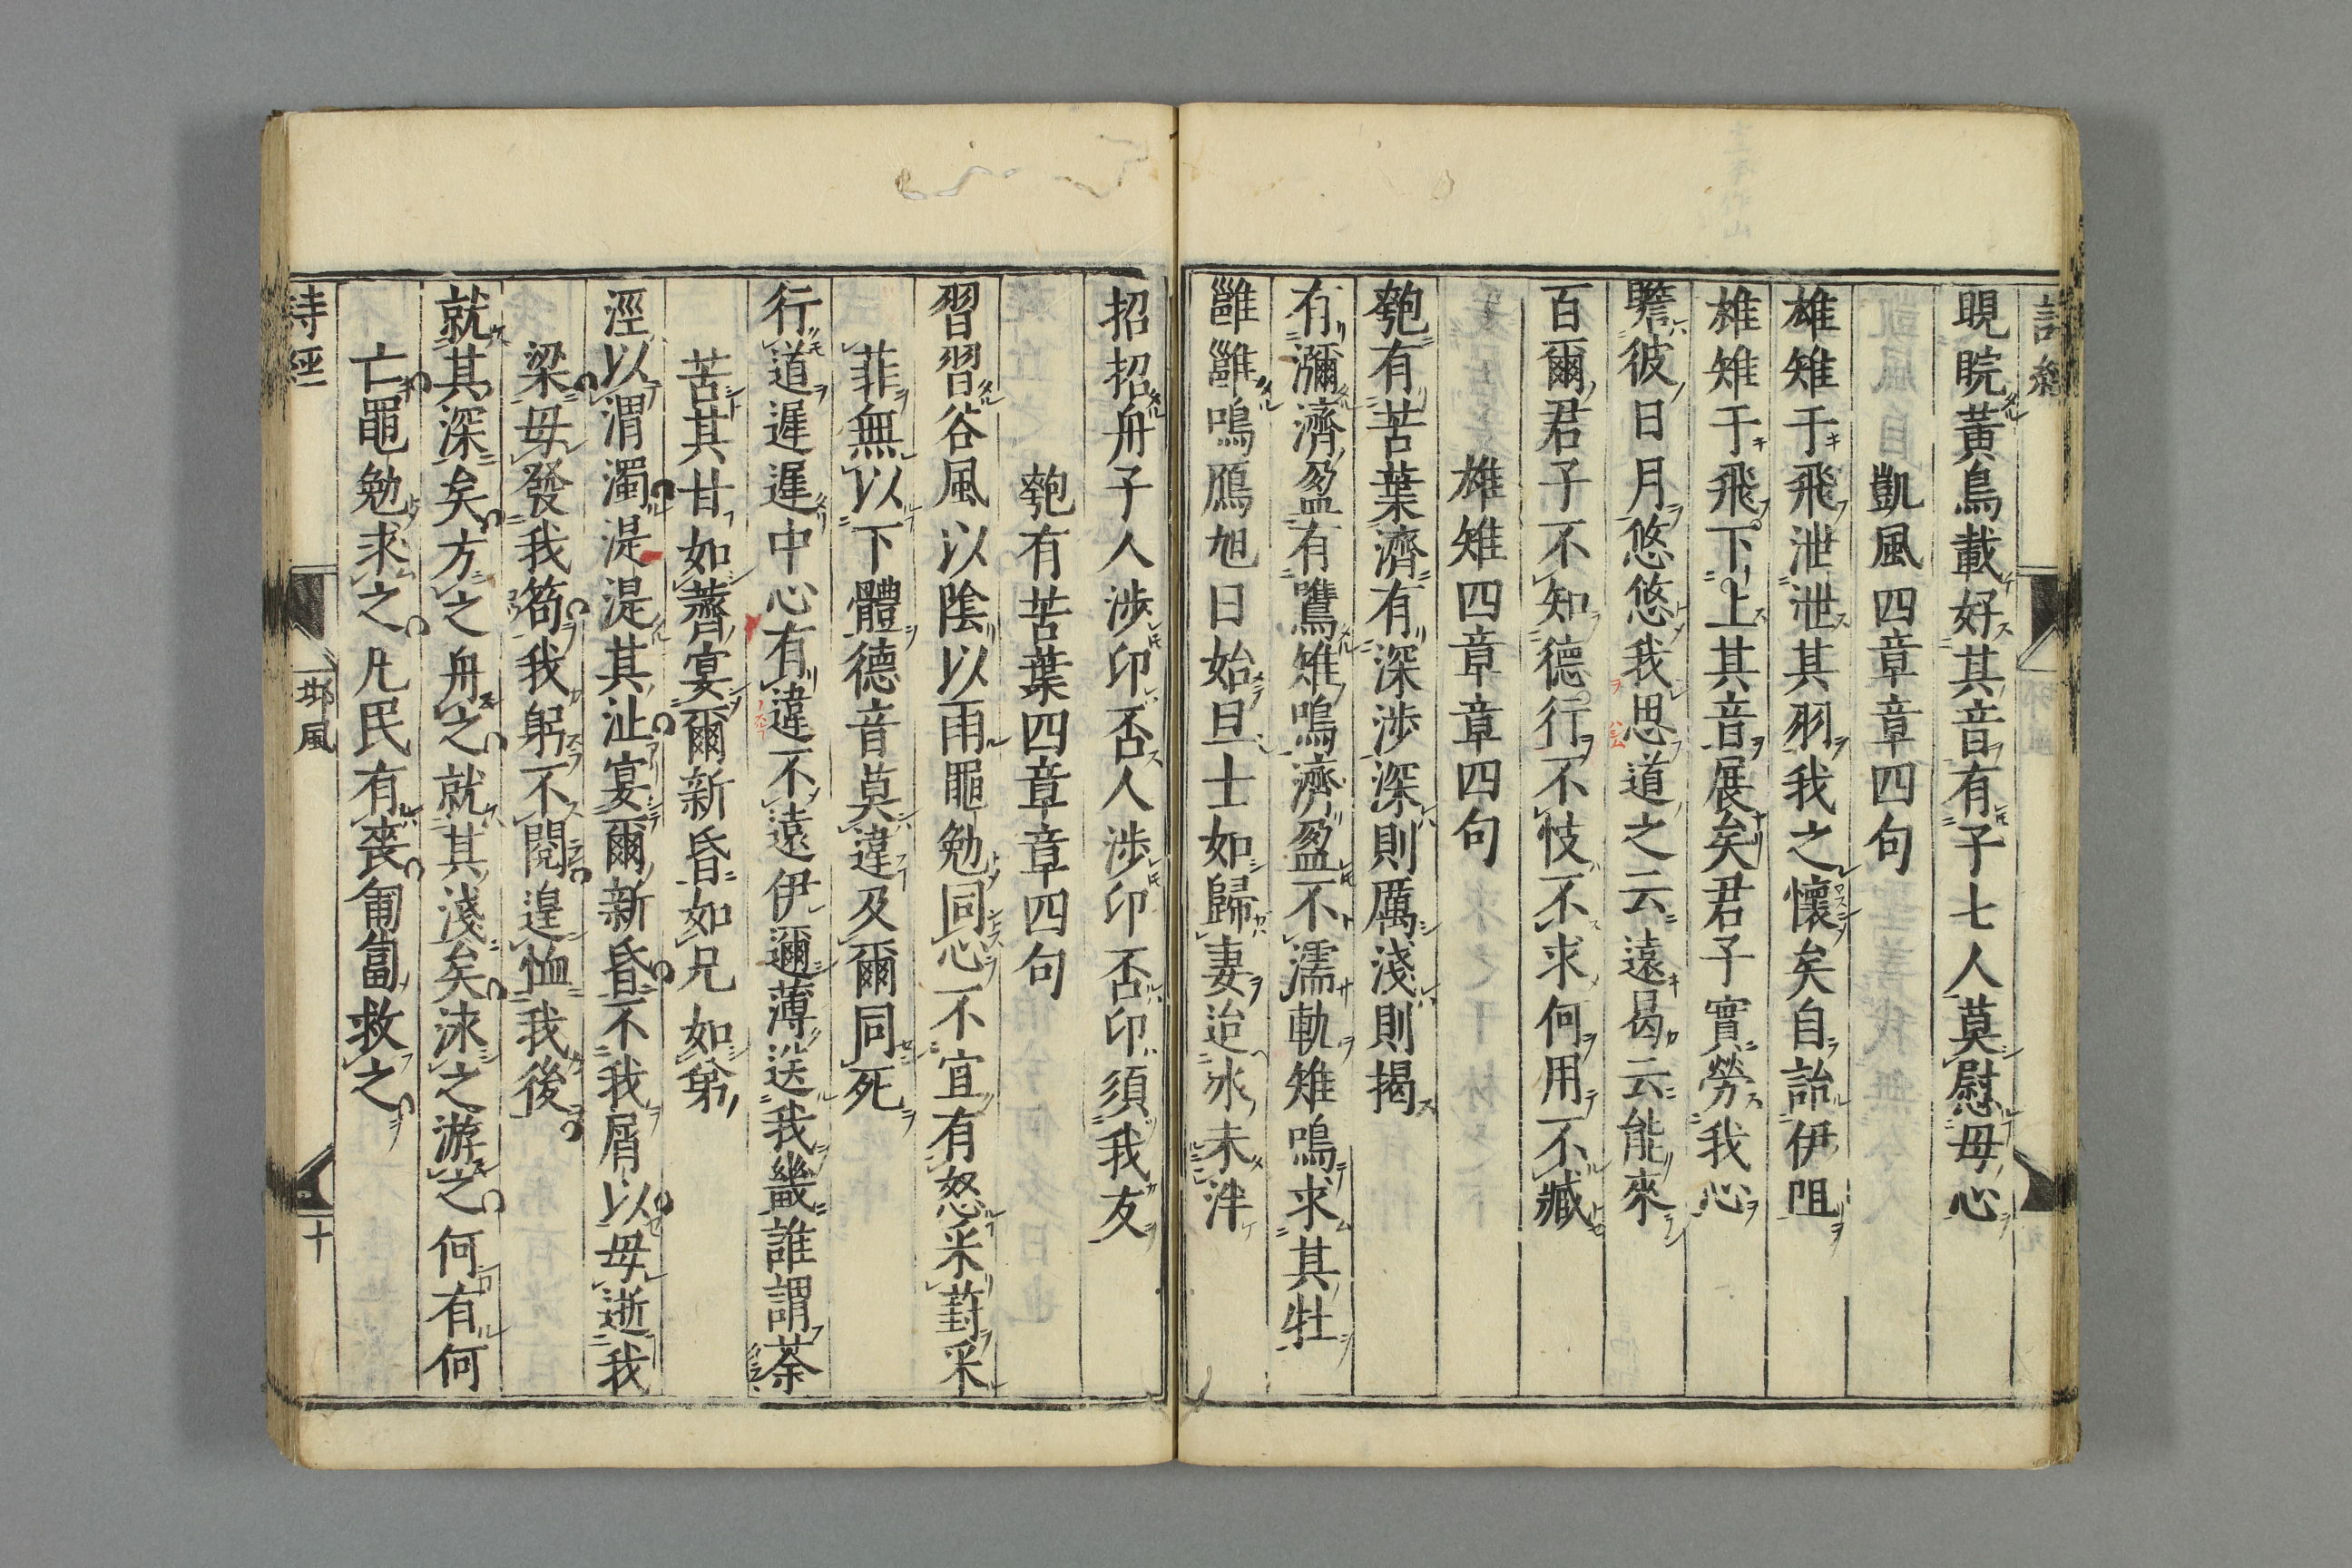 睍睆黃鳥載好其音有子七人莫慰母心
凱風四章章四句
雄雉于飛泄泄其羽我之懷矣自詒伊阻
雄雉于飛下上其音展矣君子實勞我心
瞻彼日月悠悠我思道之云遠曷云能來
百爾君子不知德行不忮不求何用不臧
雄雉四章章四句
匏有苦葉濟有深涉深則厲淺則揭
有瀰濟盈有鷕雉鳴濟盈不濡軌雉鳴求其牡
雝雝鳴鴈旭日始旦士如歸妻迨冰未泮
招招舟子人涉卬否人涉卬否卬須我友
匏有苦葉四章章四句
習習谷風以陰以雨黽勉同心不宜有怒采葑采
菲無以下體德音莫違及爾同死
行道遲遲中心有違不遠伊邇薄送我畿誰謂荼
苦其甘如薺宴爾新昏如兄如弟
涇以渭濁湜湜其沚宴爾新昏不我屑以毋逝我
梁毋發我笱我躬不閱遑恤我後
就其深矣方之舟之就其淺矣泳之游之何有何
亡黽勉求之凡民有喪匍匐救之
詩經
邶風
十